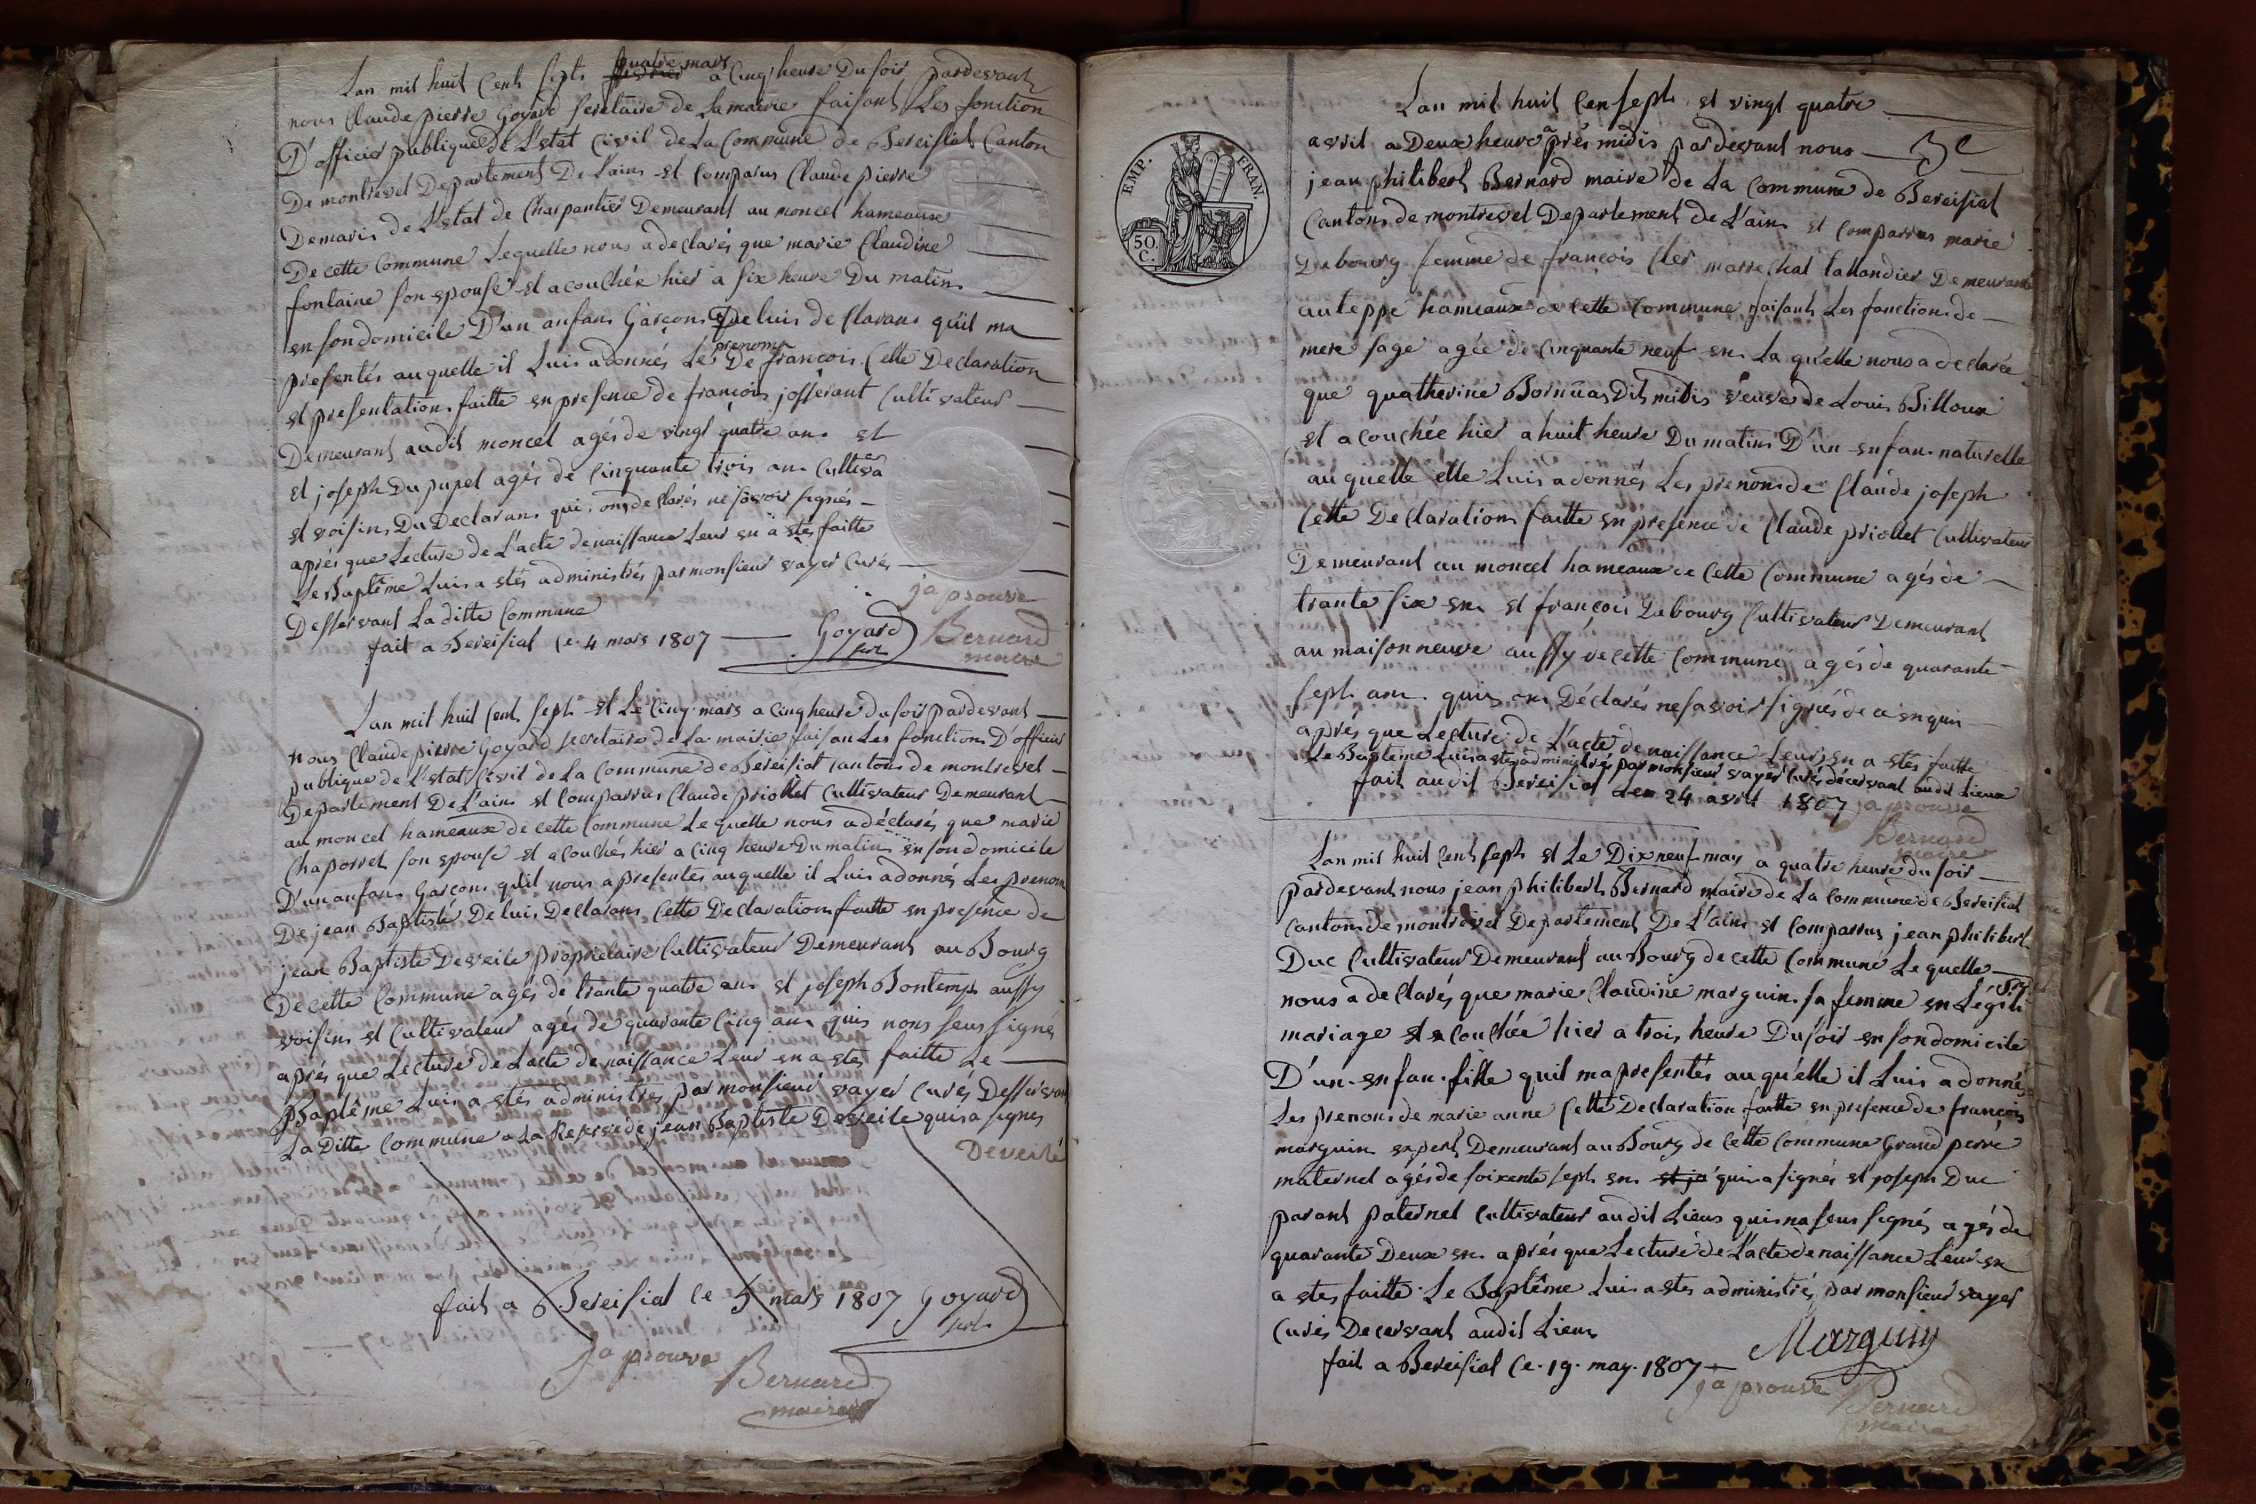 Lan mil huit Cent sept quatre mars fevrier a Cinq heure Du soir pardevant
nous Claude pierre Goyard secretaire de La mairie faisant Les fonction
D'officier publique de L'estat Civil de La Commune de Bereisiat Canton
De montrevel Departement De L'ains est Comparus Claude pierre
Demaris de L'estat de Charpantier Demeurant au moncel hameaux
De cette Commune Lequelle nous a declarés que marie Claudine
fontaine son epouse est acouchée hier a six heure Du matin
en son domicile D'un anfans Garçons De luis declarans quil ma
presentés auquelle il Luis adonnés Le prenoms De françois Cette Declaration
et presentation faitte en presence de françois josserant Cultivateur
Demeurant audit moncel agés de vingt quatre ans et
et joseph Dupupet agés de Cinquante trois ans Cultiva
et voisins Du Declarans qui ons declarés ne savoir signés
aprés que Lecture de L'acte de naissance Leur en a etes faitte
Le Baptême Luis a etés administrés par monsieur vayer Curés
Desservant La ditte Commune
fait a Bereisiat Ce 4 mars 1807 Goyard
japrouve Bernard
maire
Lan mil huit Cent sept et Le Cinq mars a Cinq heure du soir pardevant
nous Claude pierre Goyard secretaire de La mairie faisan Les fonctions D'officier
publique de L'estat Civil de La Commune de Bereisiat Cantons de montrevel
Departement De L'ains est Comparrus Claude priollet Cultivateur Demeurant
au moncel hameaux de cette Commune Lequelle nous a déclarés que marie
Chaporret son epouse est acouchés hier a Cinq heure Du matin en son domicile
D'un anfans Garçons quil nous a presentés auquelle il Luis adonnés Les prenom
De jean Baptiste De luis Declarans Cette Declaration faitte en presence de
jean Baptiste Deveile proprietaire Cultivateur Demeurant au Bourg
De cette Commune agés de trante quatre ans et joseph Bontemps aussy
voisins et Cultivateur agés de quarante Cinq ans quis nons seus signés
aprés que Lecture de Lacte de naissance Leur en a etes faitte Le
Baptême Luis a etés administrés par monsieur vayer Curés Desservan
La Ditte Commune a La Reserve de jean Baptiste Deveile quis a signés
Deveile
fait a Bereisiat Ce 5 mars 1807 Goyard
japrouve Bernard
maire
Lan mil huit Cen sept et vingt quatre
avril a Deux heure aprés midis pardevant nous
jean philibert Bernard maire de La Commune de Bereisiat
Cantons de montrevel Departement de L'ains est Comparrus marie
Dabourg femme de françois Cler marechal tallandier Demeurant
au teppe hameaux de cette Commune faisant Les fonctions de
mere sage agée de Cinquante neuf en. La quelle nous a declarée
que quatherine Dit midis veuve de Louis Billoux
est acouchée hier a huit heure Du matins D'un enfan naturelle
auquelle elle Luis adonnés Les prenoms de Claude joseph
Cette Declaration faitte en presence de Claude priollet Cultivateur
Demeurant au moncel hameaux de Cette Commune agés de
trante six en et françois Dabourg Cultivateur Demeurant
au maison neuve aussy de cette Commune agés de quarante
sept ans quis ons Déclarés ne savoir signés de ce enquis
aprés que Lecture de L'acte de naissance Leur en a etes faitte
Le Baptême Luis a etes administrés par monsieur vayer Curés décervant audit Lieux
fait audit Bereisiat Ce 24 avril 1807 japrouve
Bernard
maire
Lan mil huit Cent sept et Le Dix neuf may a quatre heure du soir
pardevant nous jean philibert Bernard maire de La Commune de Bereisiat
Cantons de montrevel Departement De L'ains est Comparrus jean philibert
Duc Cultivateur Demeurant au Bourg de cette Commune Lequelle
nous a declarés que marie Claudine marguin sa femme en Legiti
mariage est acouchée hier a trois heure Du soir en son domicile
D'un enfan fille quil ma presentés auquelle il Luis adonnés
Les prenons de marie anne Cette Declaration faitte en presence de françois
marguin expert Demeurant au Bourg de Cette Commune Grand perre
maternel agés de soixente sept en et jo quis a signés et joseph Duc
parant paternel Cultivateur audit Lieus quis na seus signés agés de
quarante Deux en aprés que Lecture de L'acte de naissance Leur en
a etes faitte Le Baptême Luis a etes administrés par monsieur vayer
Curés Decervant audit Lieux
Marguin
fait a Bereisiat Ce 19 may 1807
japrouve Bernard
maire
EMP. FRAN.
50.
C.